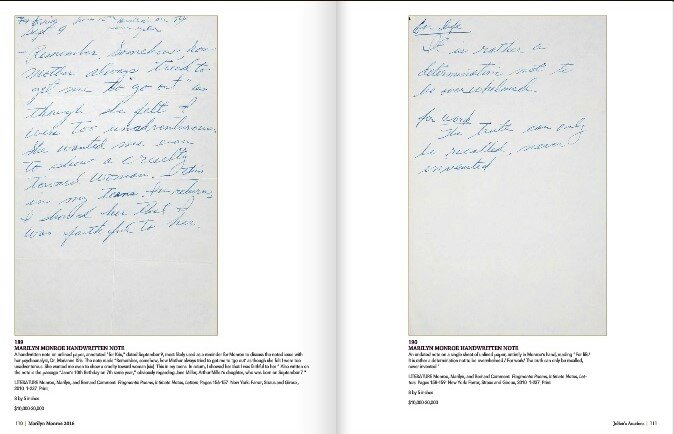 Sept 9
Remember, Somehow how
Mother always tried to
get me to "go out" as
though she felt I
were too unadventurous.
She wanted me even
to show a cruelty
toward woman. This
in my teens. In return,
I showed her that I
was faithful to her.
189
MARILYN MONROE HANDWRITTEN NOTE
A handwritten note on unlined paper, annotated "for Kris," dated September 9, most likely used as a reminder for Monroe to discuss the noted issue with
her psychoanalyst, Dr. Marianne Kris. The note reads "Remember, somehow, how Mother always tried to get me to "go out" as though she felt I were too
unadventurous. She wanted me even to show a cruelty toward woman [sic]. This in my teens. In return, I showed her that I was faithful to her." Also written on
the note is the passage "Janie's 10th Birthday on 7th same year," obviously regarding Jane Miller, Arthur Miller's daughter, who was born on September 7.
LITERATURE Monroe, Marilyn, and Bernard Comment. Fragments: Poems, Intimate Notes, Letters. Pages 156-157. New York: Farrar, Straus and Giroux,
2010. 1-237. Print.
8 by 5 inches
$10,000-20,000
110 | Marilyn Monroe 2016
for life
It is rather a
determination not to
be overwhelmed.
for work
The truth can only
be recalled, never
invented
190
MARILYN MONROE HANDWRITTEN NOTE
An undated note on a single sheet of unlined paper, entirely in Monroe's hand, reading "For life/
It is rather a determination not to be overwhelmed/ For work/ The truth can only be recalled,
never invented."
LITERATURE Monroe, Marilyn, and Bernard Comment. Fragments: Poems, Intimate Notes, Let-
ters. Pages 158-159. New York: Farrar, Straus and Giroux, 2010. 1-237. Print.
8 by 5 inches
$10,000-20,000
Julien's Auctions | 111